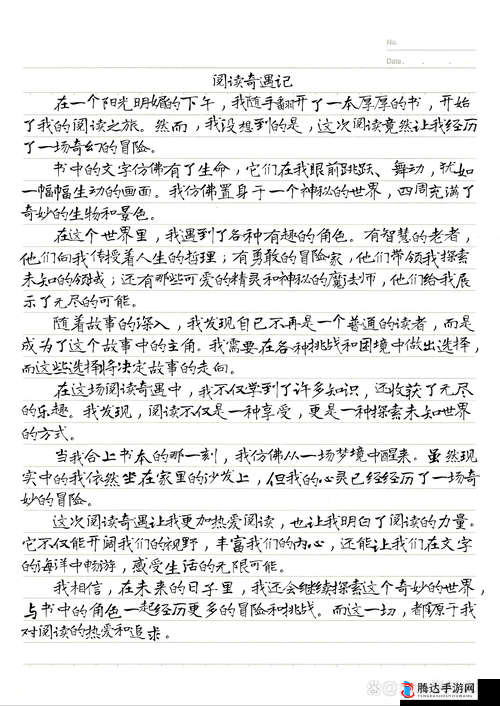 No.
Date.
阅读奇遇记
在一个阳光明媚的下午，我随手翻开了一本厚厚的书，开始
了我的阅读之旅。然而，我没想到的是，这次阅读竟然让我经历
了一场奇幻的冒险。
书中的文字仿佛有了生命，它们在我眼前跳跃、舞动，犹如
一幅幅生动的画面。我仿佛置身于一个神秘的世界，四周充满了
奇妙的生物和景色。
在这个世界里，我遇到了各种有趣的角色。有智慧的老者，
他们向我传授着人生的哲理；有勇敢的冒险家，他们带领我探索
未知的领域；还有那些可爱的精灵和神秘的魔法师，他们给我展
示了无尽的可能。
随着故事的深入，我发现自己不再是一个普通的读者，而是
成为了这个故事中的主角。我需要在各种挑战和困境中做出选择，
而这些选择将决定故事的走向。
在这场阅读奇遇中，我不仅学到了许多知识，还收获了无尽
的乐趣。我发现，阅读不仅是一种享受，更是一种探索未知世界
的方式。
当我合上书本的那一刻，我仿佛从一场梦境中醒来。虽然现
实中的我依然坐在家里的沙发上，但我的心灵已经经历了一场奇
妙的冒险。
这次阅读奇遇让我更加热爱阅读，也让我明白了阅读的力量。
它不仅能开阔我们的视野，丰富我们的内心，还能让我们在文字
的海洋中畅游，感受生活的无限可能。
我相信，在未来的日子里，我还会继续探索这个奇妙的世界，
与书中的角色一起经历更多的冒险和挑战。而这一切，都源于我
对阅读的热爱和追求。
腾达手游网